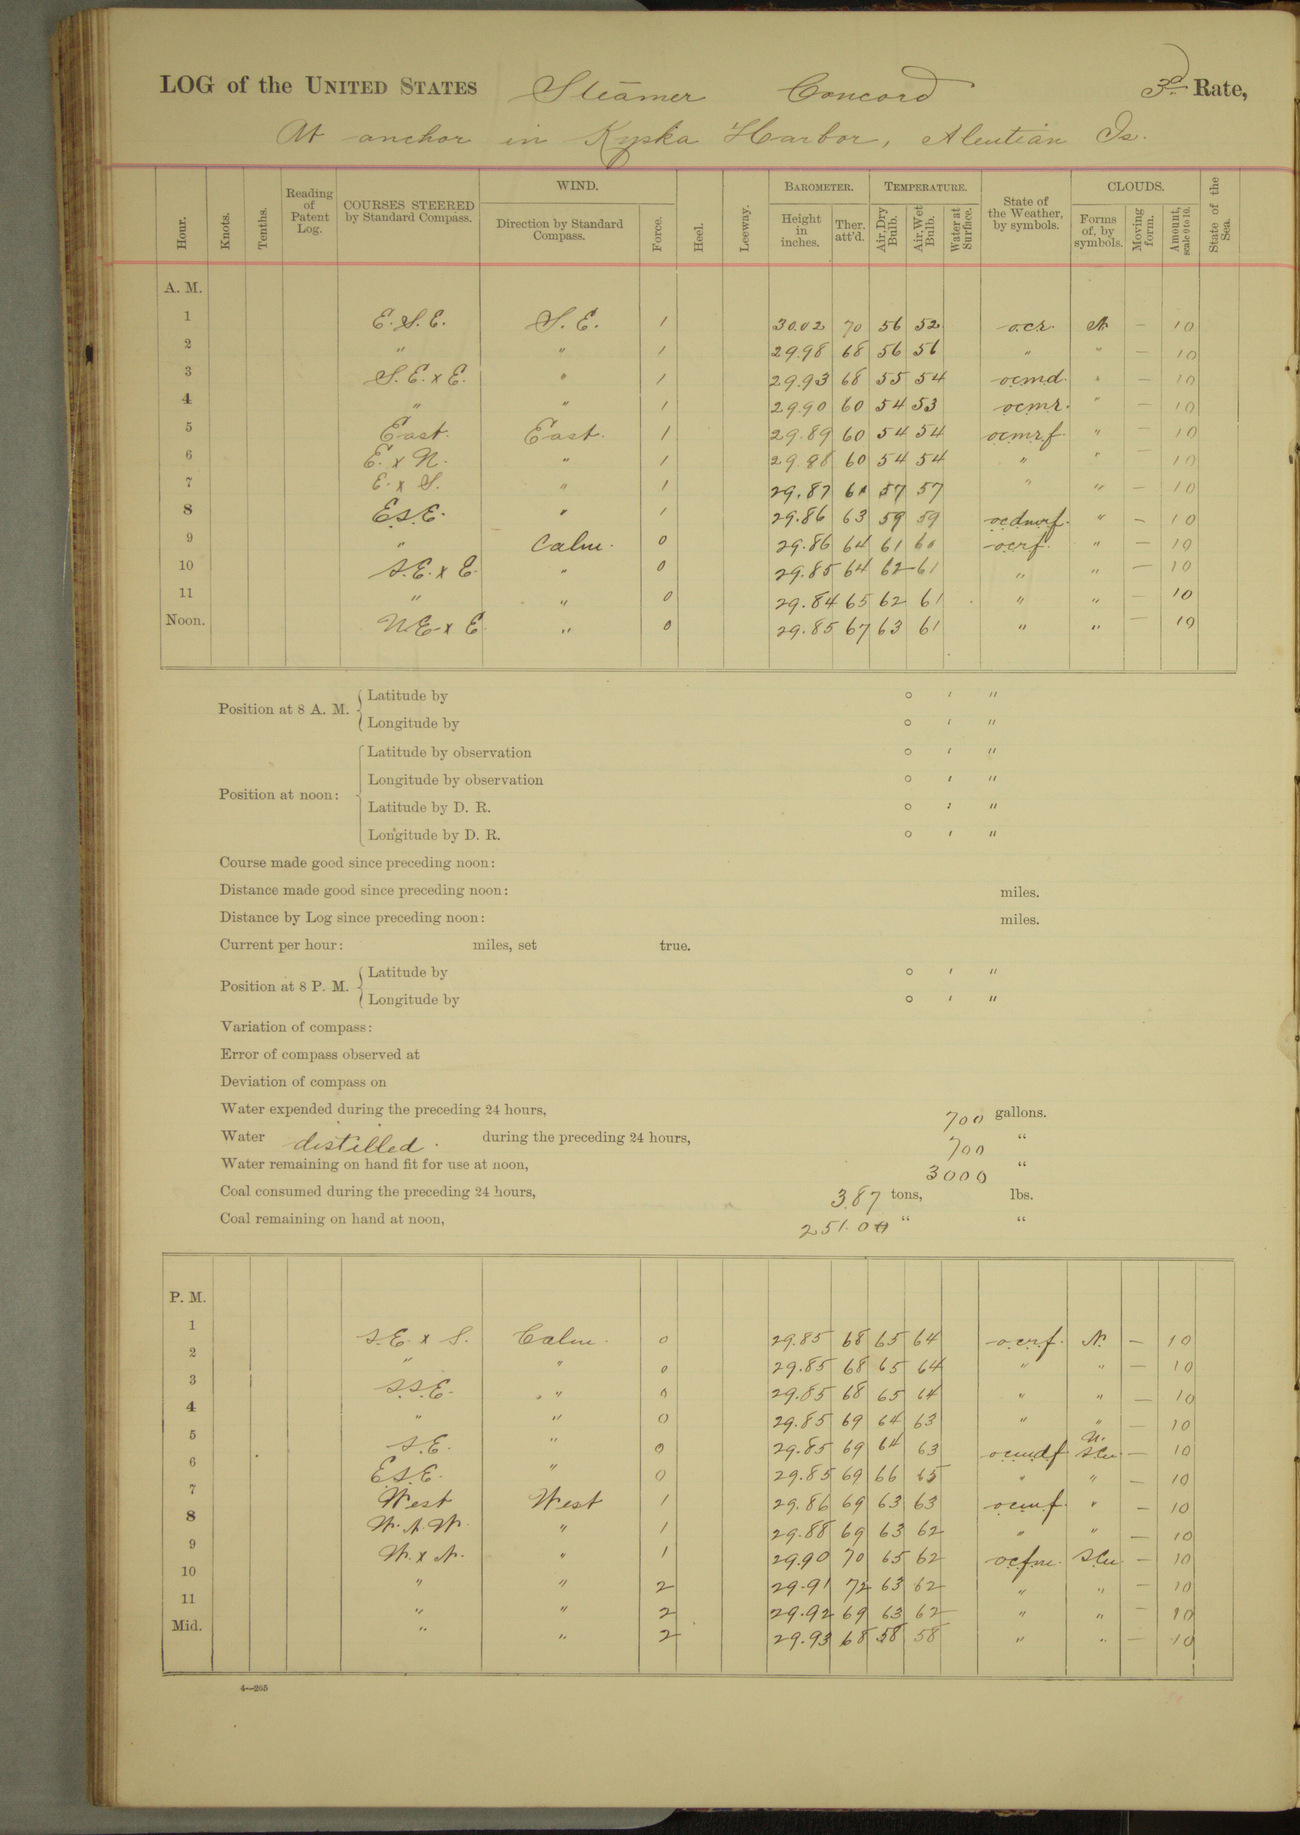 LOG of the UNITED STATES Steamer Concord 3d Rate,
At anchor in Kyska Harbor, Aleutian Is.
Hour. Knots. Tenths. Reading of Patent Log. COURSES STEERED by Standard Compass. WIND. Direction by Standard Compass. Force. Heel. Leeway. BAROMETER. Height in inches. Ther. att'd. TEMPERATURE. Air, Dry Bulb. Air, Wet Bulb. Water at Surface. State of the Weather, by symbols. CLOUDS. Forms of, by symbols. Moving form. Amount, scale 0 to 10. State of the Sea.
A. M.
1 E.S.E. S.E. 1 30.02 70 56 52 ocr. N — 10
2 " " 1 29.98 68 56 56 " " — 10
3 S.E. x E. " 1 29.93 68 55 54 ocmd. " — 10
4 " " 1 29.90 60 54 53 ocmr. " — 10
5 East. East. 1 29.89 60 54 54 ocmrf. " — 10
6 E. x N. " 1 29.88 60 54 54 " " — 10
7 E. x S. " 1 29.87 61 57 57 " " — 10
8 E.S.E. " 1 29.86 63 59 59 ocdmrf. " — 10
9 " Calm. 0 29.86 64 61 60 ocrf. " — 10
10 S.E. x E. " 0 29.85 64 62 61 " " — 10
11 " " 0 29.84 65 62 61 " " — 10
Noon. N.E. x E. " 0 29.85 67 63 61 " " — 10
Position at 8 A. M. Latitude by ° ' "
Longitude by ° ' "
Position at noon: Latitude by observation ° ' "
Longitude by observation ° ' "
Latitude by D. R. ° ' "
Longitude by D. R. ° ' "
Course made good since preceding noon:
Distance made good since preceding noon: miles.
Distance by Log since preceding noon: miles.
Current per hour: miles, set true.
Position at 8 P. M. Latitude by ° ' "
Longitude by ° ' "
Variation of compass:
Error of compass observed at
Deviation of compass on
Water expended during the preceding 24 hours, 700 gallons.
Water distilled. during the preceding 24 hours, 700 "
Water remaining on hand fit for use at noon, 3000 "
Coal consumed during the preceding 24 hours, 3.87 tons, lbs.
Coal remaining on hand at noon, 251.00 " "
P. M.
1 S.E. x S. Calm. 0 29.85 68 65 64 ocrf. N. — 10
2 " " 0 29.85 68 65 64 " " — 10
3 S.S.E. " 0 29.85 68 65 64 " " — 10
4 " " 0 29.85 69 64 63 " " — 10
5 S.E. " 0 29.85 69 64 63 ocmdf N. S.Cu — 10
6 E.S.E. " 0 29.85 69 66 65 " " — 10
7 West West 1 29.86 69 63 63 ocmf. " — 10
8 W.N.W. " 1 29.88 69 63 62 " " — 10
9 W. x N. " 1 29.90 70 65 62 ocfm. S.Cu — 10
10 " " 2 29.91 72 63 62 " " — 10
11 " " 2 29.92 69 63 62 " " — 10
Mid. " " 2 29.93 68 58 58 " " — 10
4—265